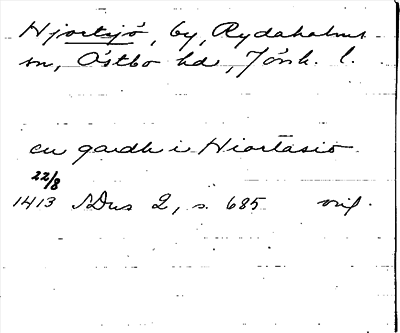 Hjortsjö, by, Rydaholms
sn, Östbo hd, Jönk. l.
en gardh i Hiortasio
22/8
1413 SDns 2, s. 685. orig.